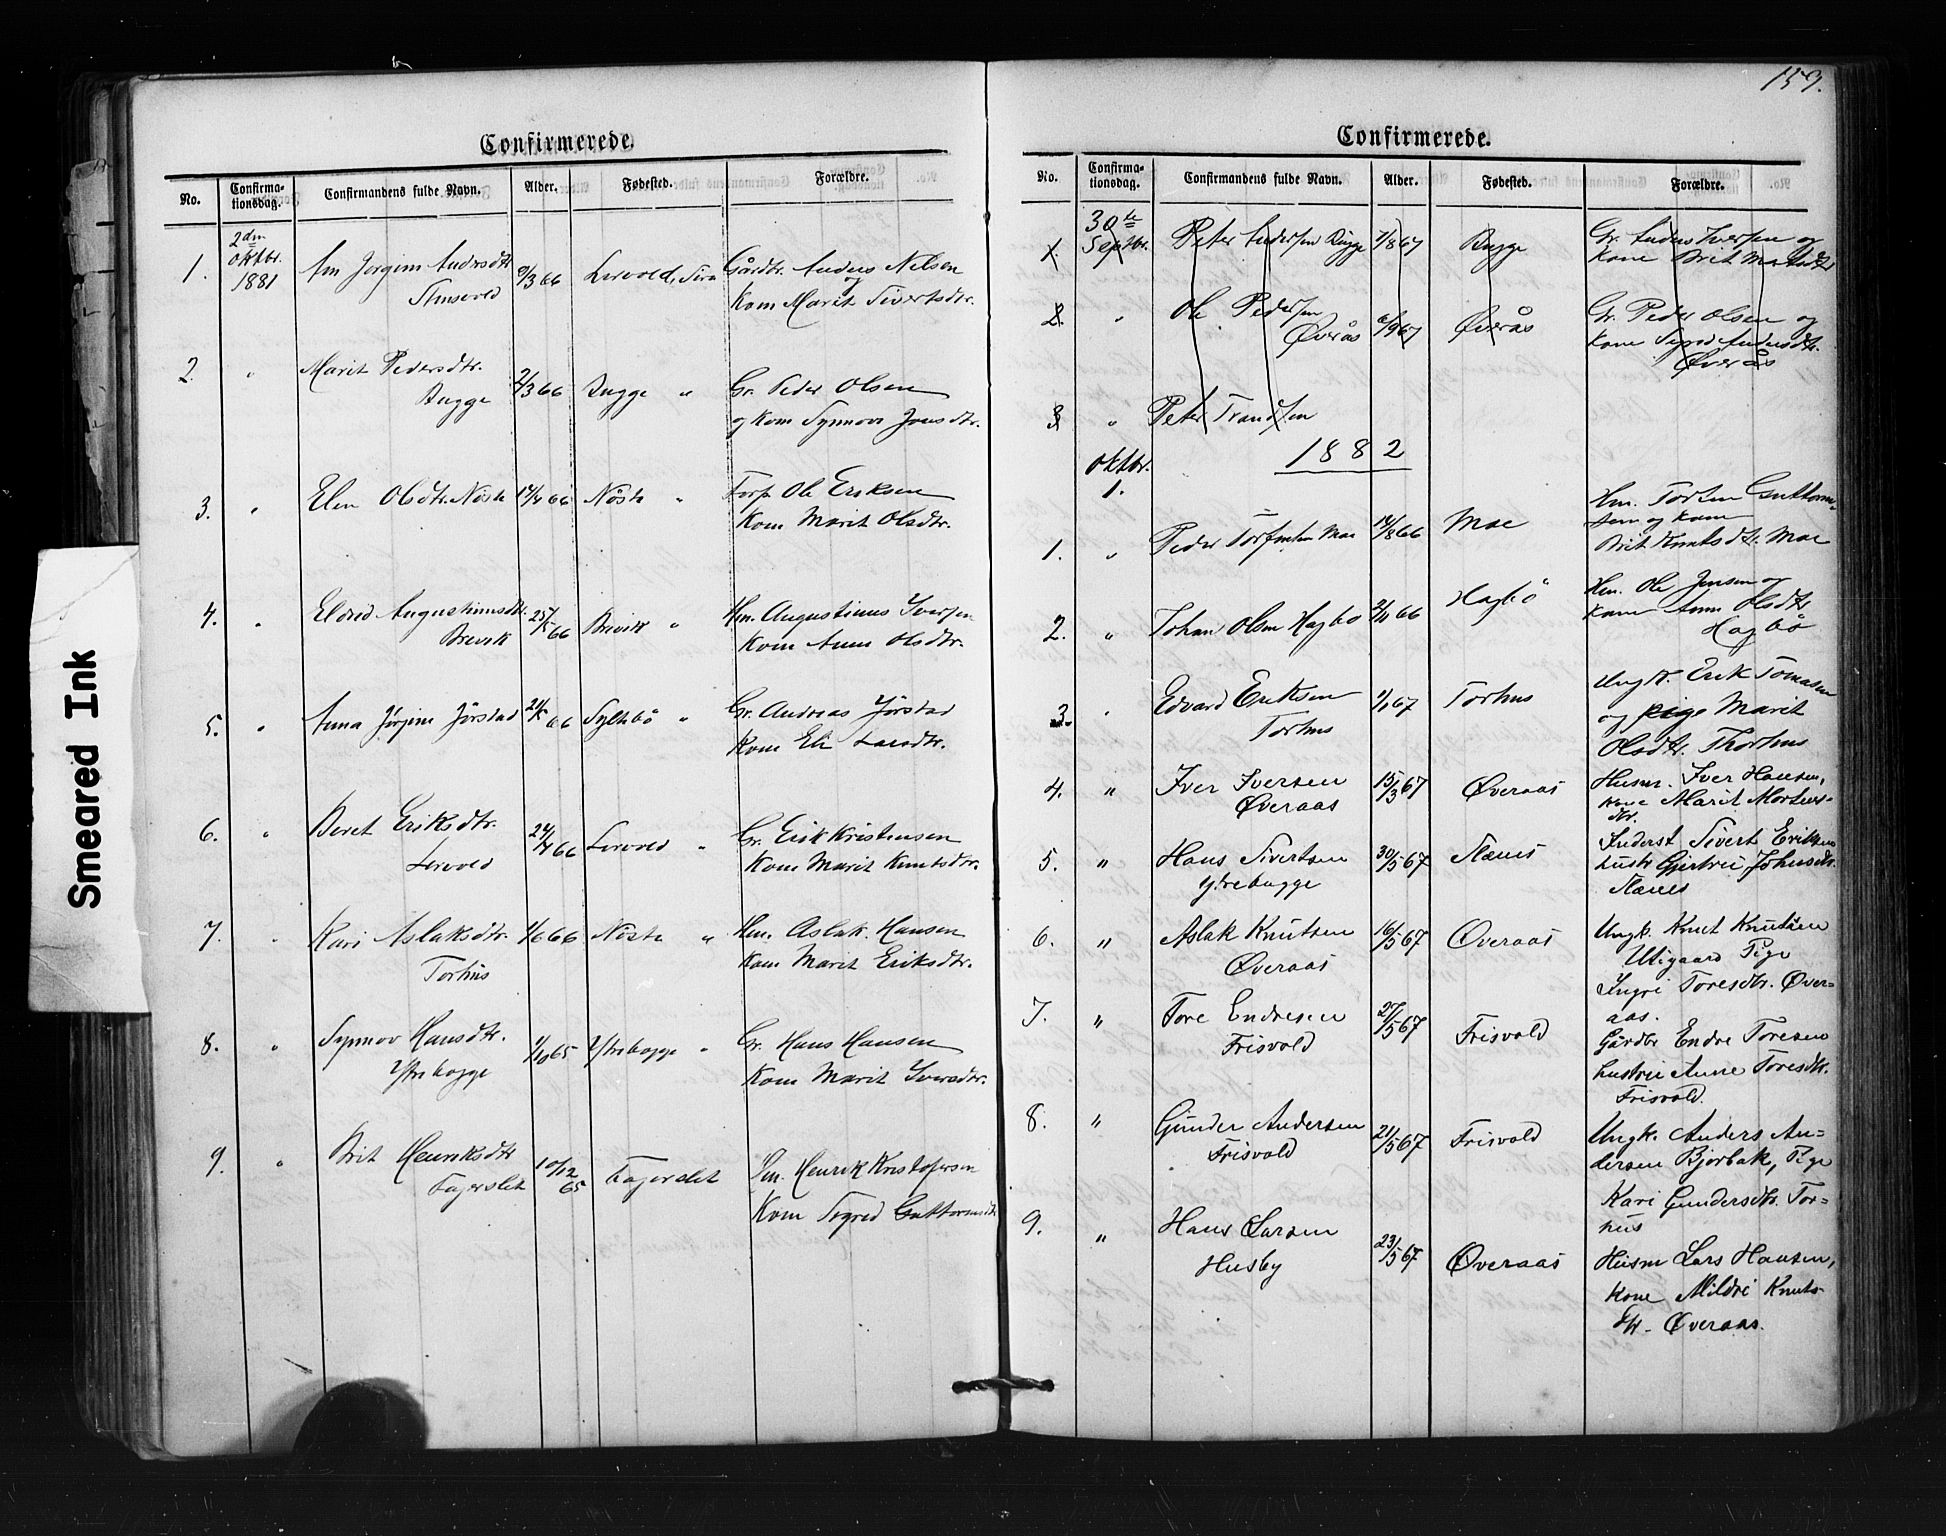 Smeared Ink
Confirmerede.
No.
Confirma-
tionsdag.
Confirmandens fulde Navn.
Alder.
Fødested.
Forældre.
1.
2den
Oktbr.
1881
Jørgine Andersdtr
9/3 66
Lervold, Sira
Gårdbr. Anders Nelsen
og
Kone Marit Sivertsdtr.
2.
"
Marit Pedersdtr.
Bugge
2/3 66
Bugge "
Gr. Peder Olsen
og Kone Synnøv Jonsdtr.
3.
"
Elen Olsdtr. Nøste
14/4 66
Nøste "
Forp. Ole Eriksen
Kone Marit Olsdtr.
4.
"
Eldrid Augustinusdtr.
Brevik
25/5 66
Brevik "
Hm. Augustinus Iversen
Kone Anne Olsdtr.
5.
"
Anna Jørgine Jørstad
66
Syltebø "
Gr. Andreas Jørstad
Kone Eli Larsdtr.
6.
"
Beret Eriksdtr.
Lervold
24/4 66
Lervold "
Gr. Erik Kristensen
Kone Marit Knutsdtr.
7.
"
Kari Aslaksdtr.
Torhus
1/6 66
Nøste "
Hm. Aslak Hansen
Kone Marit Eriksdtr.
8.
"
Synnøv Hansdtr.
Ytrebugge
1/10 65
Ytrebugge "
Gr. Hans Hansen
Kone Marit Iversdtr.
9.
"
Brit Henriksdtr
Fagerslet
10/12
65
Fagerslet
Hm. Henrik Kristofersen
Kone Sigred Guttormsdtr
159.
Confirmerede.
No.
Confirma-
tionsdag.
Confirmandens fulde Navn.
Alder.
Fødested.
Forældre.
1.
30te
Septbr.
Peter Andersen Bugge
7/8 67
Bugge
Gr. Anders Iversen og
Kone Brit Matsdtr
2.
"
Ole Pedersen
Øverås
6/9 67
Øverås
Gr. Peder Olsen og
Kone Sigrid Andersdtr.
Øverås
3
"
Peter Trandsen
1882
Oktbr.
1.
1.
"
Peder Torstensen Moe
14/8 66
Moe
Hm. Torsten Guttorm-
sen og Kone
Brit Knutsdtr. Moe
2.
"
Johan Olsen Hagbø
2/11 66
Hagbø
Hm. Ole Jensen og
Kone Anne Olsdtr
Hagbø
3.
"
Edvard Eriksen
Torhus
1/1 67
Torhus
Ungk. Erik Tomasen
og pige Marit
Olsdtr. Thorhus
4.
"
Iver Iversen
Øveraas
15/3 67
Øveraas
Husm. Iver Hansen,
Kone Marit Mortens-
dtr.
5.
"
Hans Sivertsen
Ytrebugge
30/5 67
Slænes
Inderst Sivert Eriksen
hustr. Gjertrui Johnsdtr.
Slænes
6.
"
Aslak Knutsen
Øveraas
16/5 67
Øveraas
Ungk. Knut Knutsen
Utigaard Pige
Ingri Toresdtr. Øver-
aas.
7.
"
Tore Endresen
Frisvold
27/5 67
Frisvold
Gårdbr Endre Toresen
hustru Anne Toresdtr.
Frisvold.
8.
"
Gunder Andersen
Frisvold
21/5 67
Frisvold
Ungk. Anders An-
dersen Bjorbak, Pige
Kari Gundersdtr. Tor-
hus
9.
"
Hans Larsen
Husby
23/5 67
Øveraas
Husm Lars Hansen,
Kone Mildri Knuts-
dtr. Øveraas.